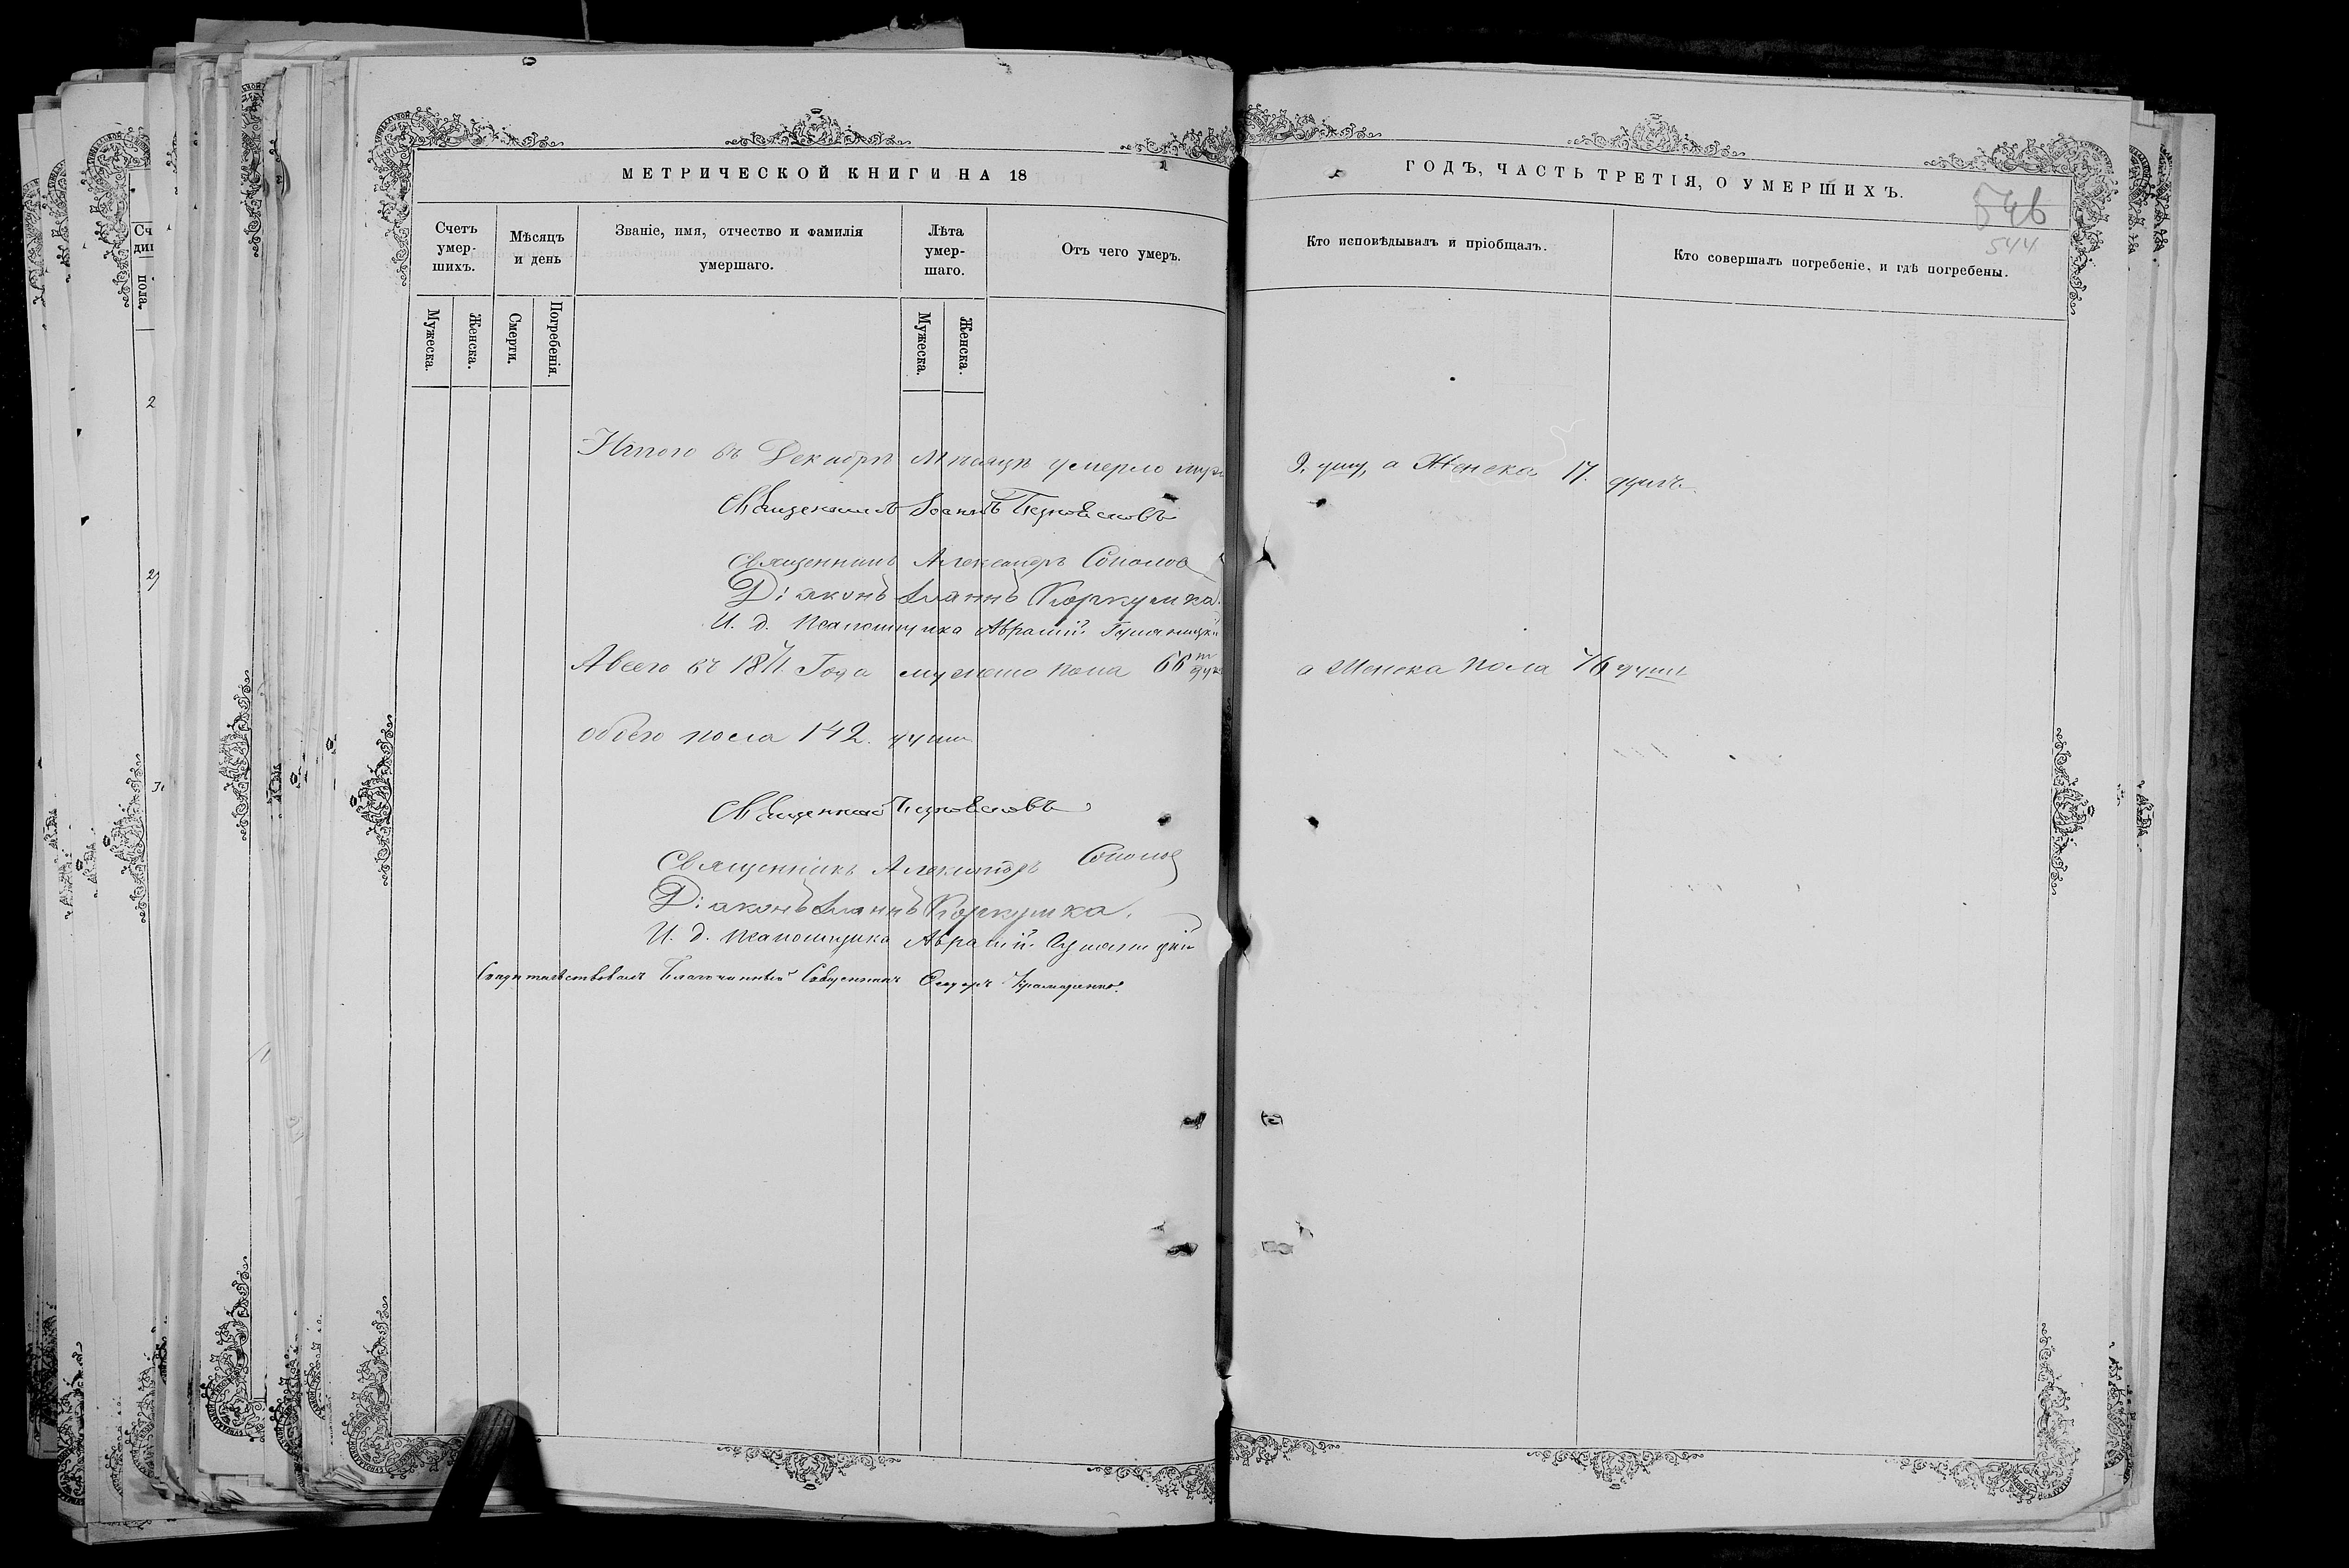 МЕТРИЧЕСКОЙ КНИГИ НА 18
ГОДЪ, ЧАСТЬ ТРЕТІЯ, О УМЕРШИХЪ.
546
544
Счетъ умер-шихъ.
Мѣсяцъ и день
Званіе, имя, отчество и фамилія умершаго.
Лѣта умер-шаго.
Отъ чего умеръ.
Кто исповѣдывалъ и пріобщалъ.
Кто совершалъ погребеніе, и гдѣ погребены.
Мужеска.
Женска.
Смерти.
Погребенія.
Мужеска.
Женска.
Итого въ Декабрѣ Мѣсяцѣ умерло
9. душ, а Женска 17. душъ.
Священникъ Іоаннъ
Священникъ Александръ Соколов
Діаконъ Іоаннъ Коркушка.
И. д. Псаломщика Аврамій
А всего въ 1871 Года мужеско пола 66
а Женска пола 76 душъ
обоего пола 142. души
Священникъ
Священникъ Александръ Соколов
Діаконъ Іоаннъ Коркушка.
И. д. Псаломщика Аврамій
Свидѣтельствовалъ Благочинный Священникъ Ѳеодоръ Крамаренко.
Сч
ди
пола.
2
29